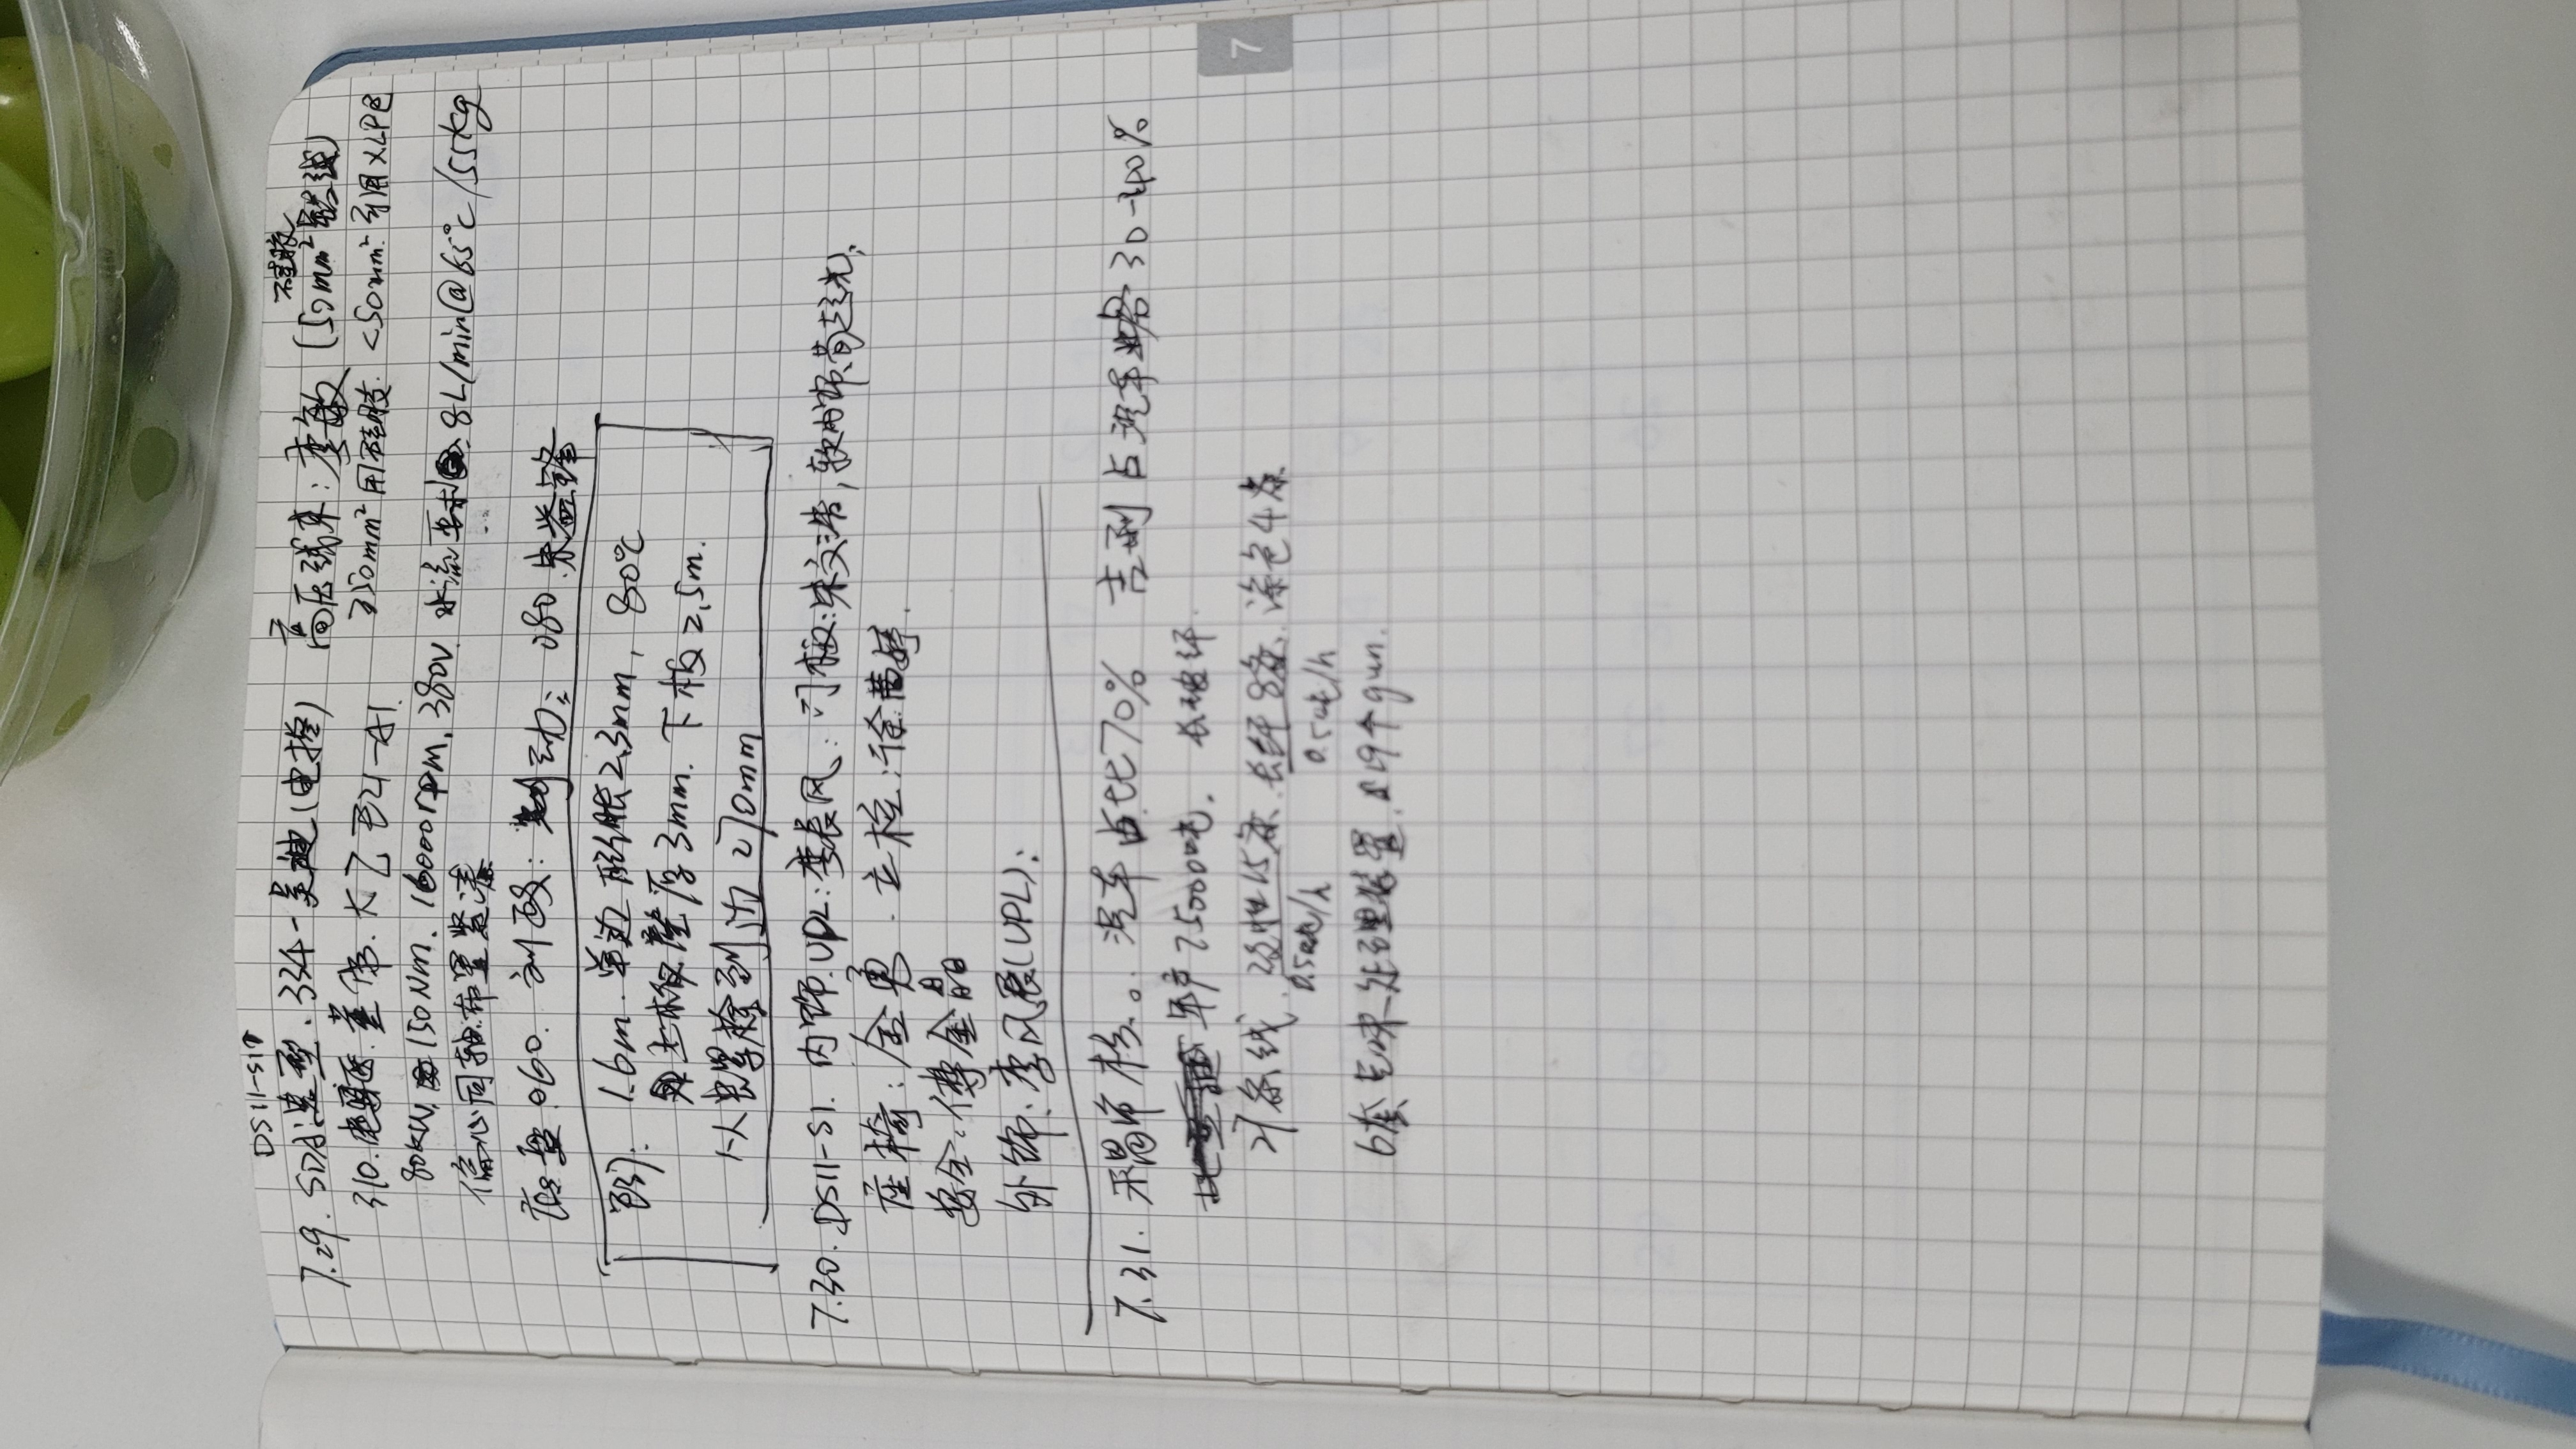 DS11-S1
7.29. SDA造型. 334-吴迪(电控) 高压线束: 李敏 (50mm² 铝线)
硅胶
310. 电驱. 董 E21-A1. ≥50mm² 用硅胶. <50mm² 可用XLPE
80kW, 150Nm. 16000rpm. 380V. 水流要求: 8L/min@65℃/55kg
偏心同轴. 布置紧凑
底盘 060. 刘 : 制动: 080 朱益锋
1.6m. 单边膨胀2.3mm, 80℃
上板壁厚3mm. 下板2.5m.
从螺栓到边 270mm
7.30. DS11-S1. 内饰. UPL: 李长风. 门板: 朱文浩, 软内饰: 黄超光.
座椅: 金勇. 立柱: 徐茜婷.
安全: 傅金晶
外饰: 李风展(UPL):
7.31. 禾昌审核。 汽车占比70% 吉利占汽车业务30-40%
年产25000吨. 长玻纤.
27条线. 改性15条. 长纤8条. 染色4条
0.5吨/h 0.5吨/h
6套气味处理装置. 19个gun.
7